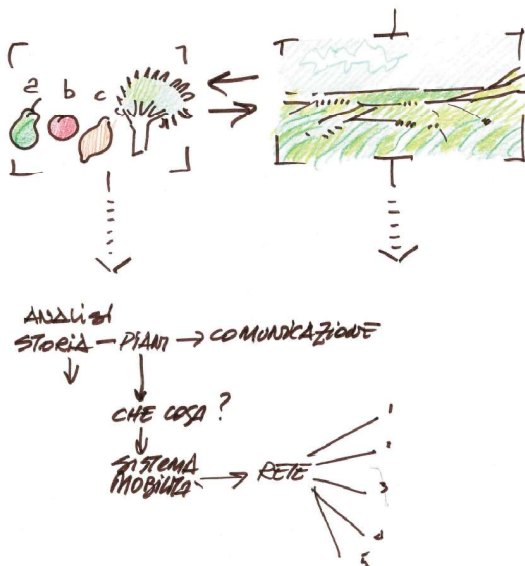 a b c
ANALISI
STORIA — PIANI → COMUNICAZIONE
CHE COSA ?
SISTEMA
MOBILITÀ → RETE
1
2
3
4
5